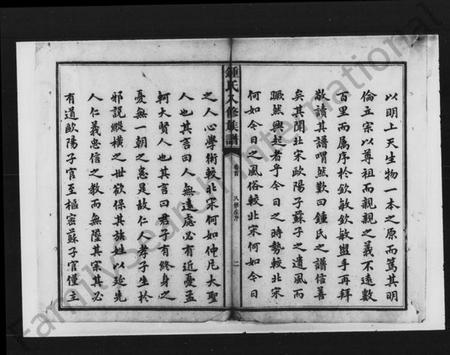 以明上天生物一本之原而篤其明
倫立宗以尊祖而親親之義不遠數
百里而属序於欽敏欽敏盥手再拜
敬讀其譜喟然歎曰鍾氏之譜信善
矣其聞北宋歐陽子蘇子之遺風而
蹶然興起者乎今日之時勢較北宋
何如今日之風俗較北宋何如今日
鍾氏八修族譜
卷首
二
之人心學術較北宋何如仲尼大聖
人也其言曰人無遠慮必有近憂孟
軻大賢人也其言曰君子有終身之
憂無一朝之患是故仁人孝子生於
邪說縱橫之世欲保其族姓以延先
人仁義忠信之教而無墜其宗其必
有道歐陽子官至樞密蘇子官僅主
FamilySearch International